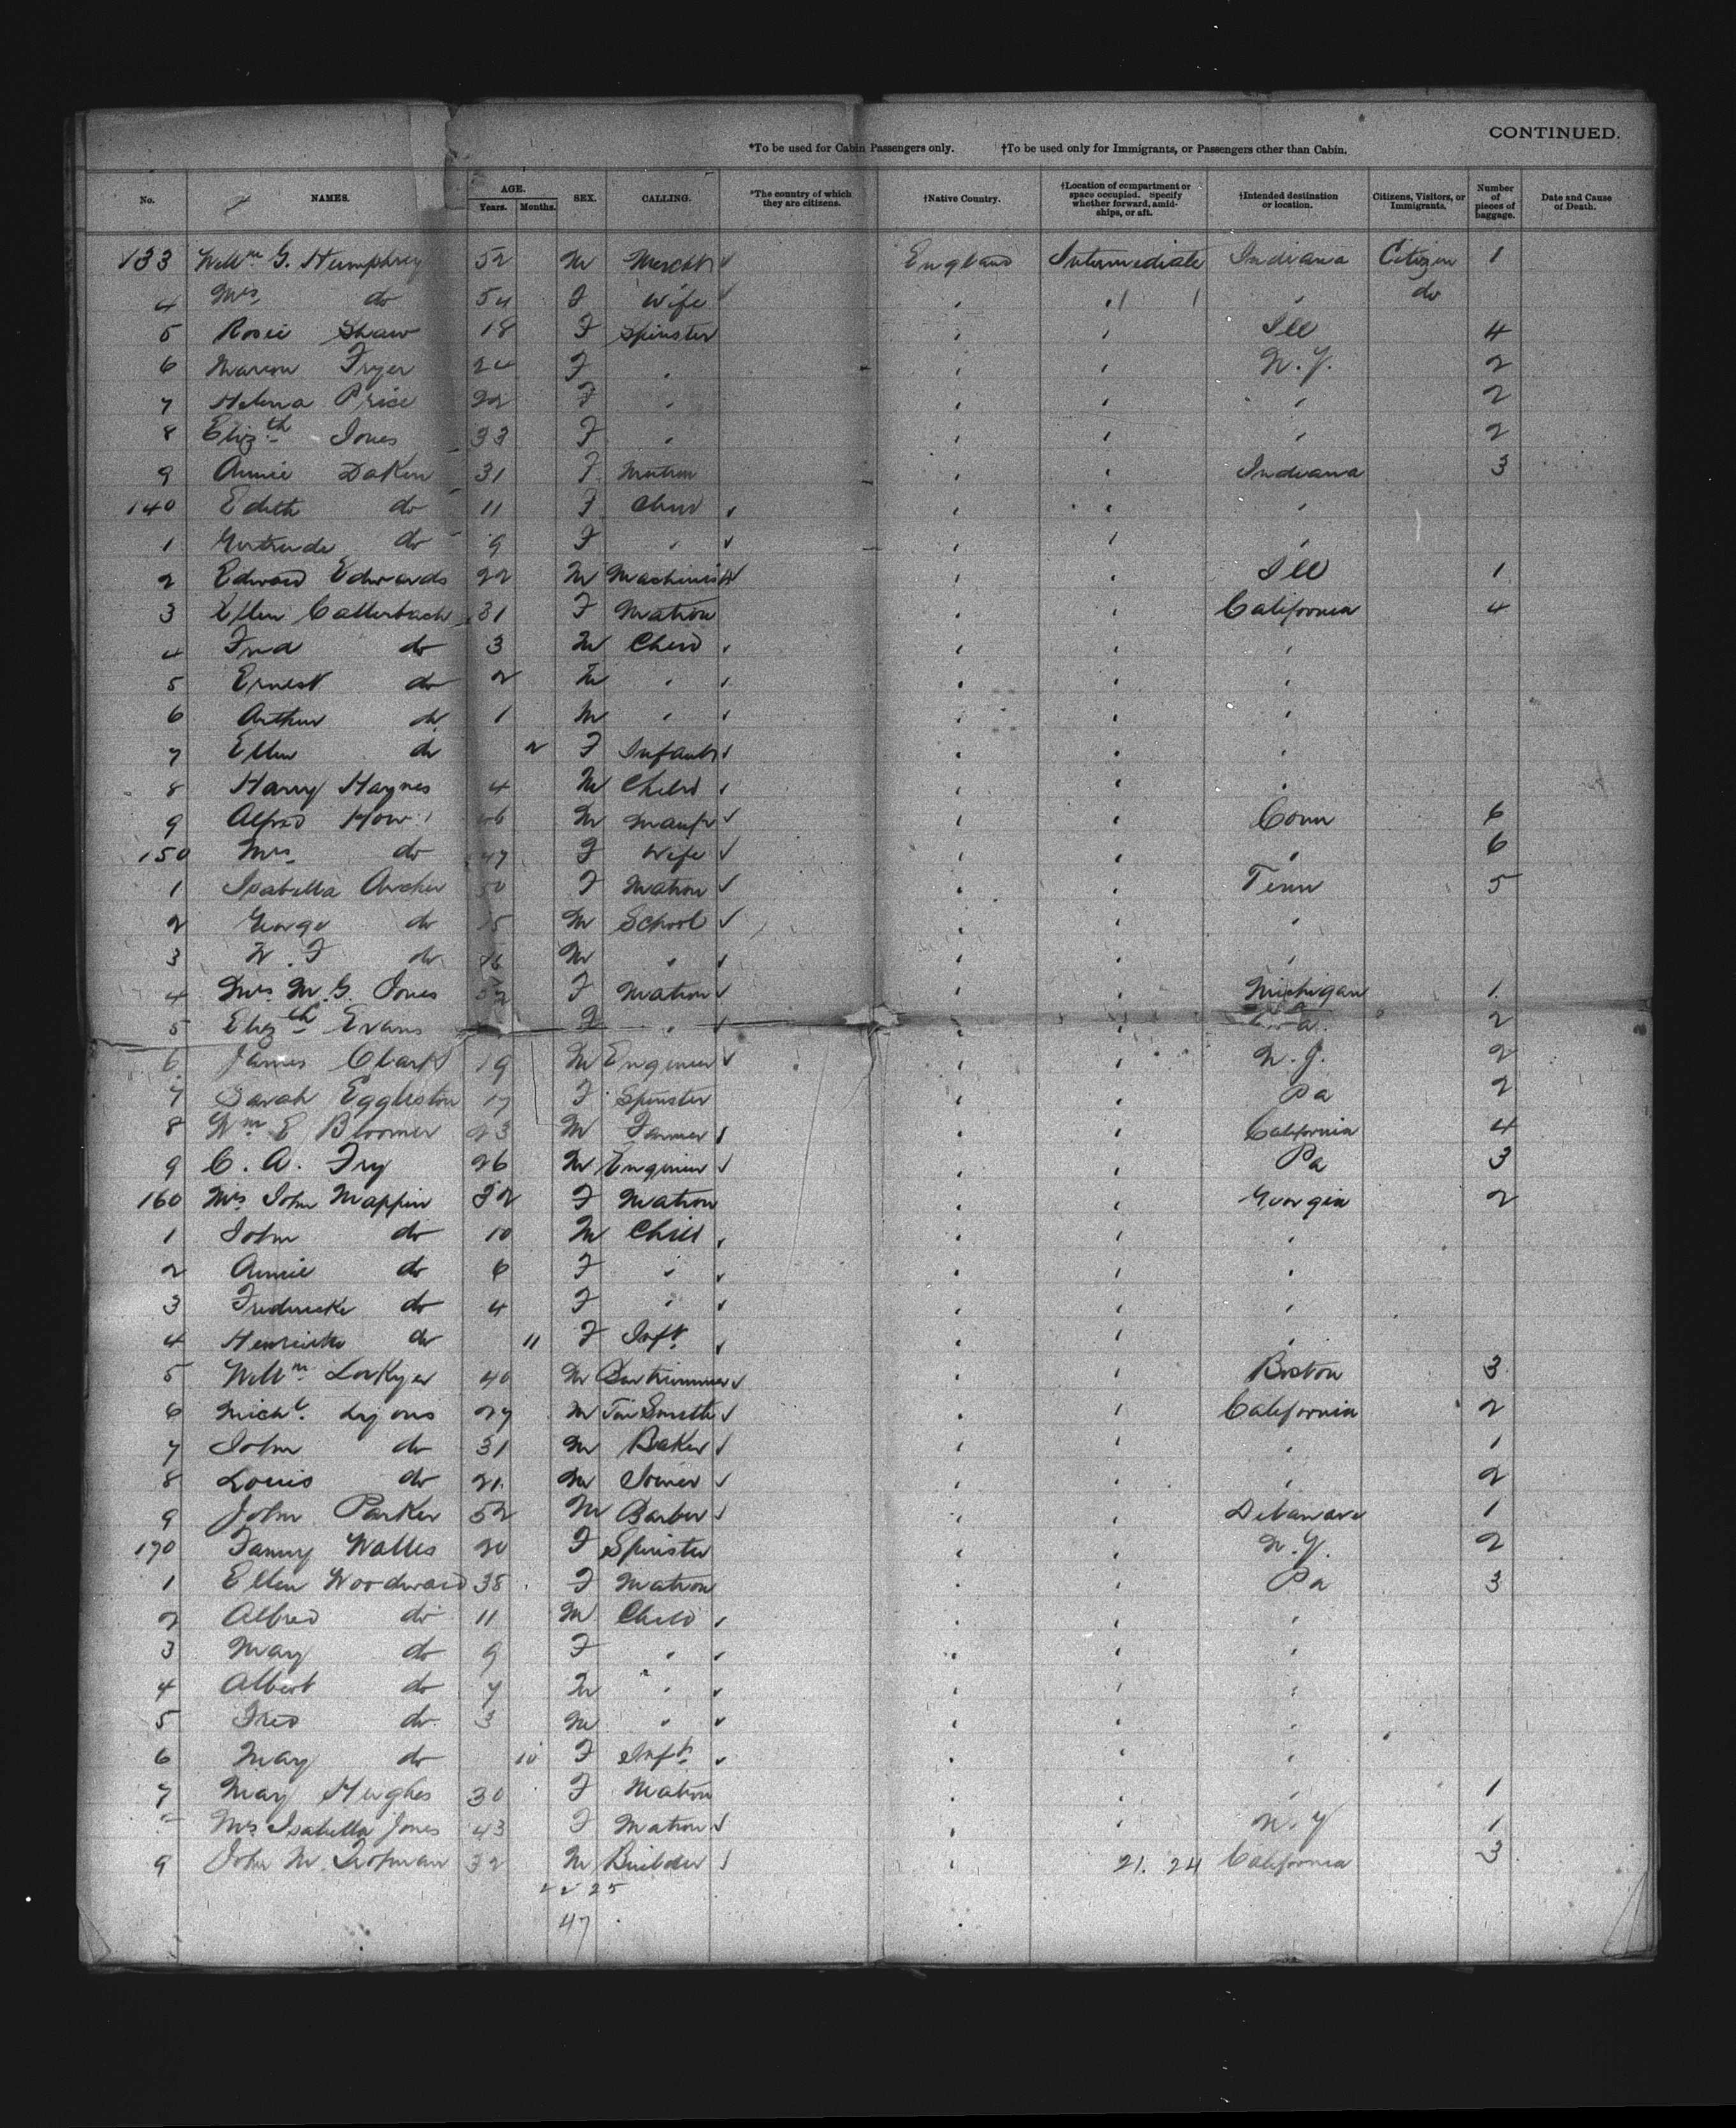 CONTINUED.
*To be used for Cabin Passengers only. †To be used only for Immigrants, or Passengers other than Cabin.
No. NAMES. AGE. Years. Months. SEX. CALLING. *The country of which they are citizens. †Native Country. †Location of compartment or space occupied. Specify whether forward, amidships, or aft. †Intended destination or location. Citizens, Visitors, or Immigrants. Number of pieces of baggage. Date and Cause of Death.
133 Willm G. Humphrey 52 M Mercht England Intermediate Indiana Citizen 1
4 Mrs do 54 F Wife " " " do
5 Rosie Shaw 18 F Spinster " " Ill 4
6 Marion Fryer 24 F " " " N.Y. 2
7 Helena Price 22 F " " " " 2
8 Elizth Jones 33 F " " " " 2
9 Annie Daken 31 F Matron " " Indiana 3
140 Edith do 11 F Child " " "
1 Gertrude do 9 F " " " "
2 Edward Edwards 22 M Machinist " " Ill 1
3 Ellen Callerbach 31 F Matron " " California 4
4 Fred do 3 M Child " " "
5 Ernest do 2 M " " " "
6 Arthur do 1 M " " " "
7 Ellen do 2 F Infant " " "
8 Harry Haynes 4 M Child " " "
9 Alfred How 46 M Manfr " " Conn 6
150 Mrs do 47 F Wife " " " 6
1 Isabella Archer 50 F Matron " " Tenn 5
2 George do 15 M School " " "
3 W. F do M " " " "
4 Mrs M. G. Jones F Matron " " Michigan 1
5 Elizth Evans F " " " 2
6 James Clark 19 M Engineer " " N.J. 2
7 Sarah Eggleston 17 F Spinster " " Pa 2
8 Wm E Bloomer 23 M Farmer " " California 4
9 C. A. Fry 26 M Engineer " " Pa 3
160 Mrs John Mappin 32 F Matron " " Georgia 2
1 John do 10 M Child " " "
2 Annie do 6 F " " " "
3 Fredericke do 4 F " " " "
4 do 11 F Inft " " "
5 Willm Lockyer 40 M " " Boston 3
6 Michl. Lyons 27 M Tin Smith " " California 2
7 John do 31 M Baker " " " 1
8 Louis do 21 M Joiner " " " 2
9 John Parker 52 M Barber " " Delaware 1
170 Fanny Walles 20 F Spinster " " N.Y. 2
1 Ellen Woodward 38 F Matron " " Pa 3
2 Alfred do 11 M Child " " "
3 May do 9 F " " " "
4 Albert do 7 M " " " "
5 Fred do 3 M " " " "
6 May do 10 F Inft " " "
7 May Hughes 30 F Matron " " " 1
Mrs Isabella Jones 43 F Matron " " N.Y 1
9 John M 32 M Builder " 21. 24 California 3
22 25
47